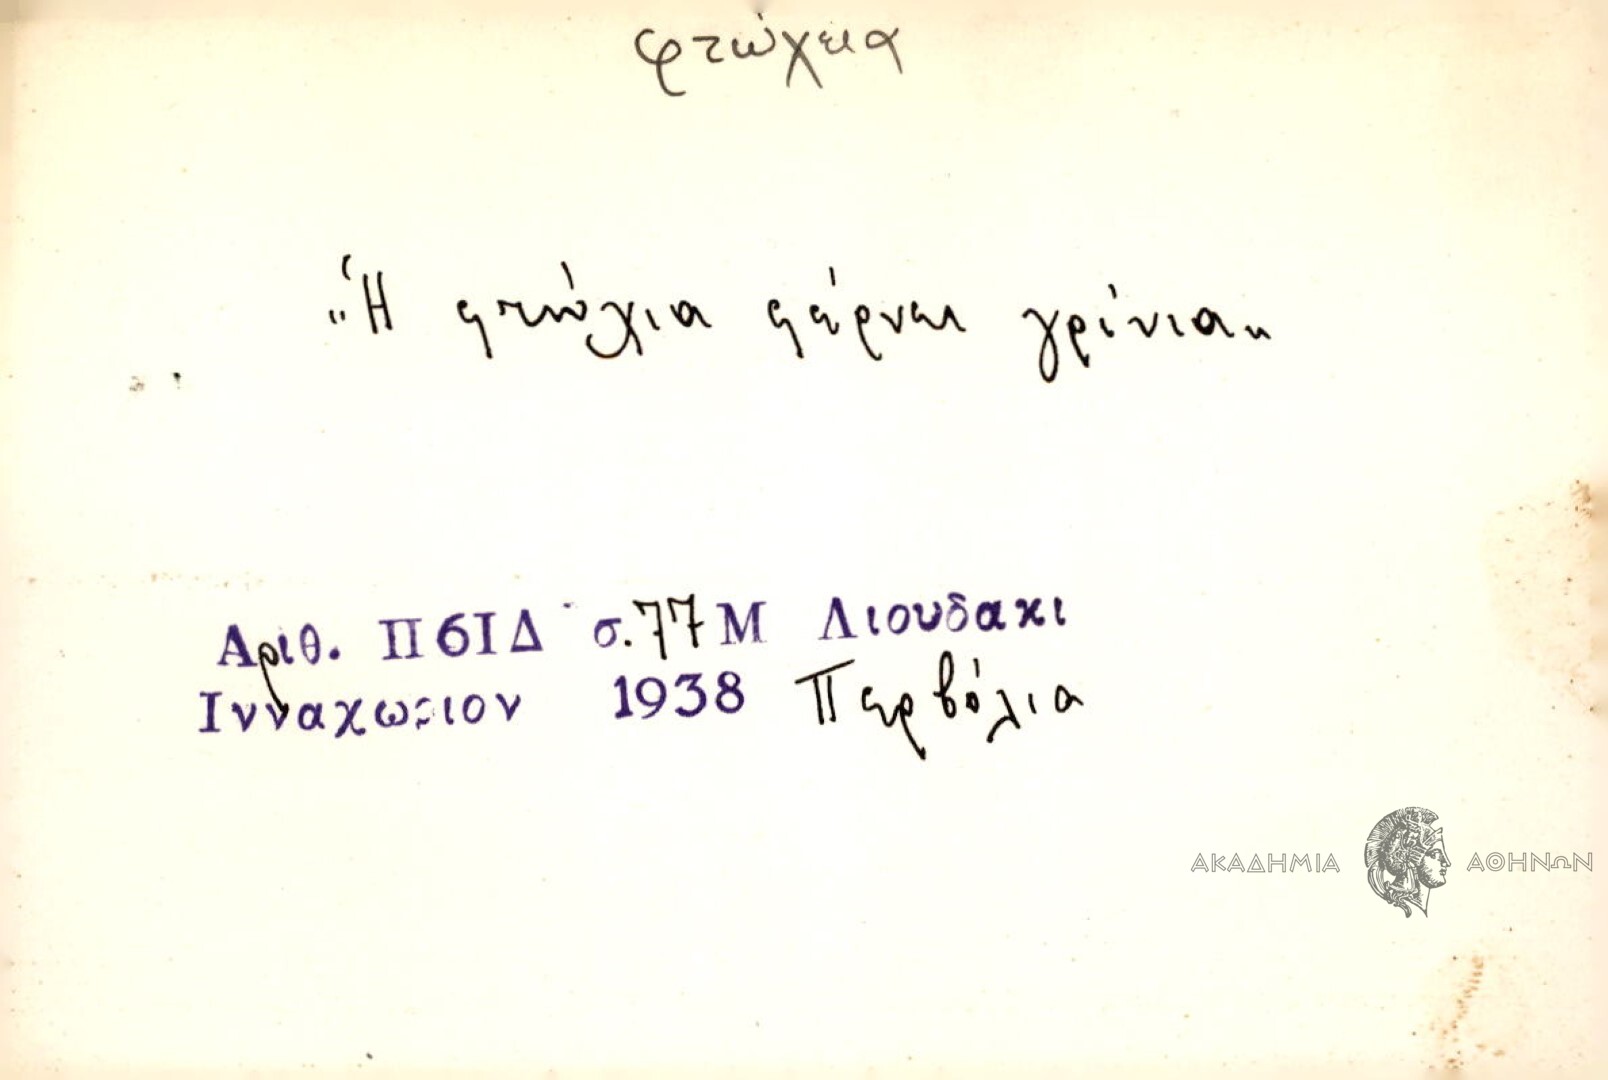 φτώχεια
"Ἡ φτώχια φέρνει γρίνια"
Αριθ. Π61Δ σ.77 Μ Λιουδακι
Ινναχωριον 1938 Περβόλια
ΑΚΑΔΗΜΙΑ ΑΘΗΝΩΝ